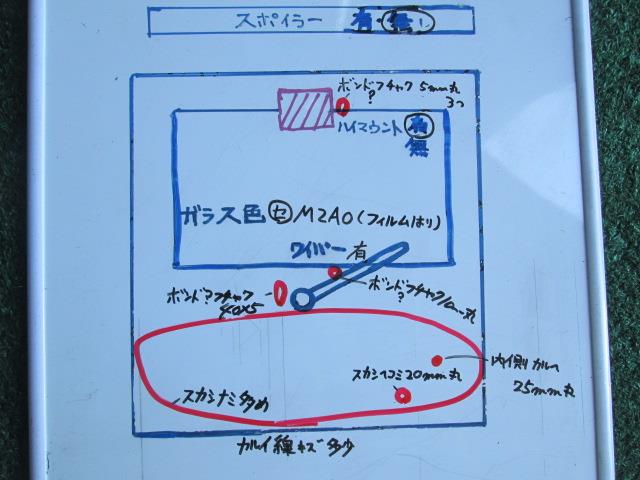 スポイラー 有・無
ボンド?フチャク 5mm丸
3つ
ハイマウント 有
無
ガラス色 セ M2A0(フィルムはり)
ワイパー 有
ボンド?フチャク
40×5
ボンド?フチャク10mm丸
スカシナミ多め
スカシヘコミ20mm丸
内側カルイ
25mm丸
カルイ線キズ多少